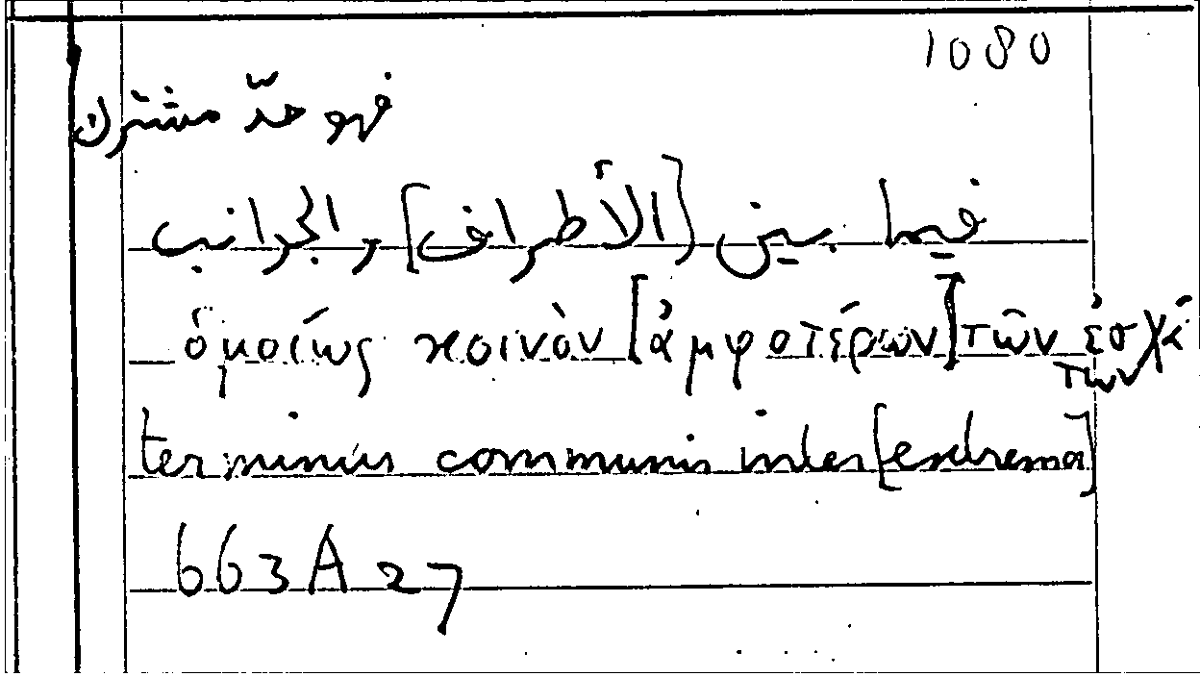 1080
فهو حدّ مشترك
فيما بين [الأطراف] والجوانب
ὁμοίως κοινὸν [ἀμφοτέρων] τῶν ἐσχά
των
terminus communis inter [extrema]
663A27